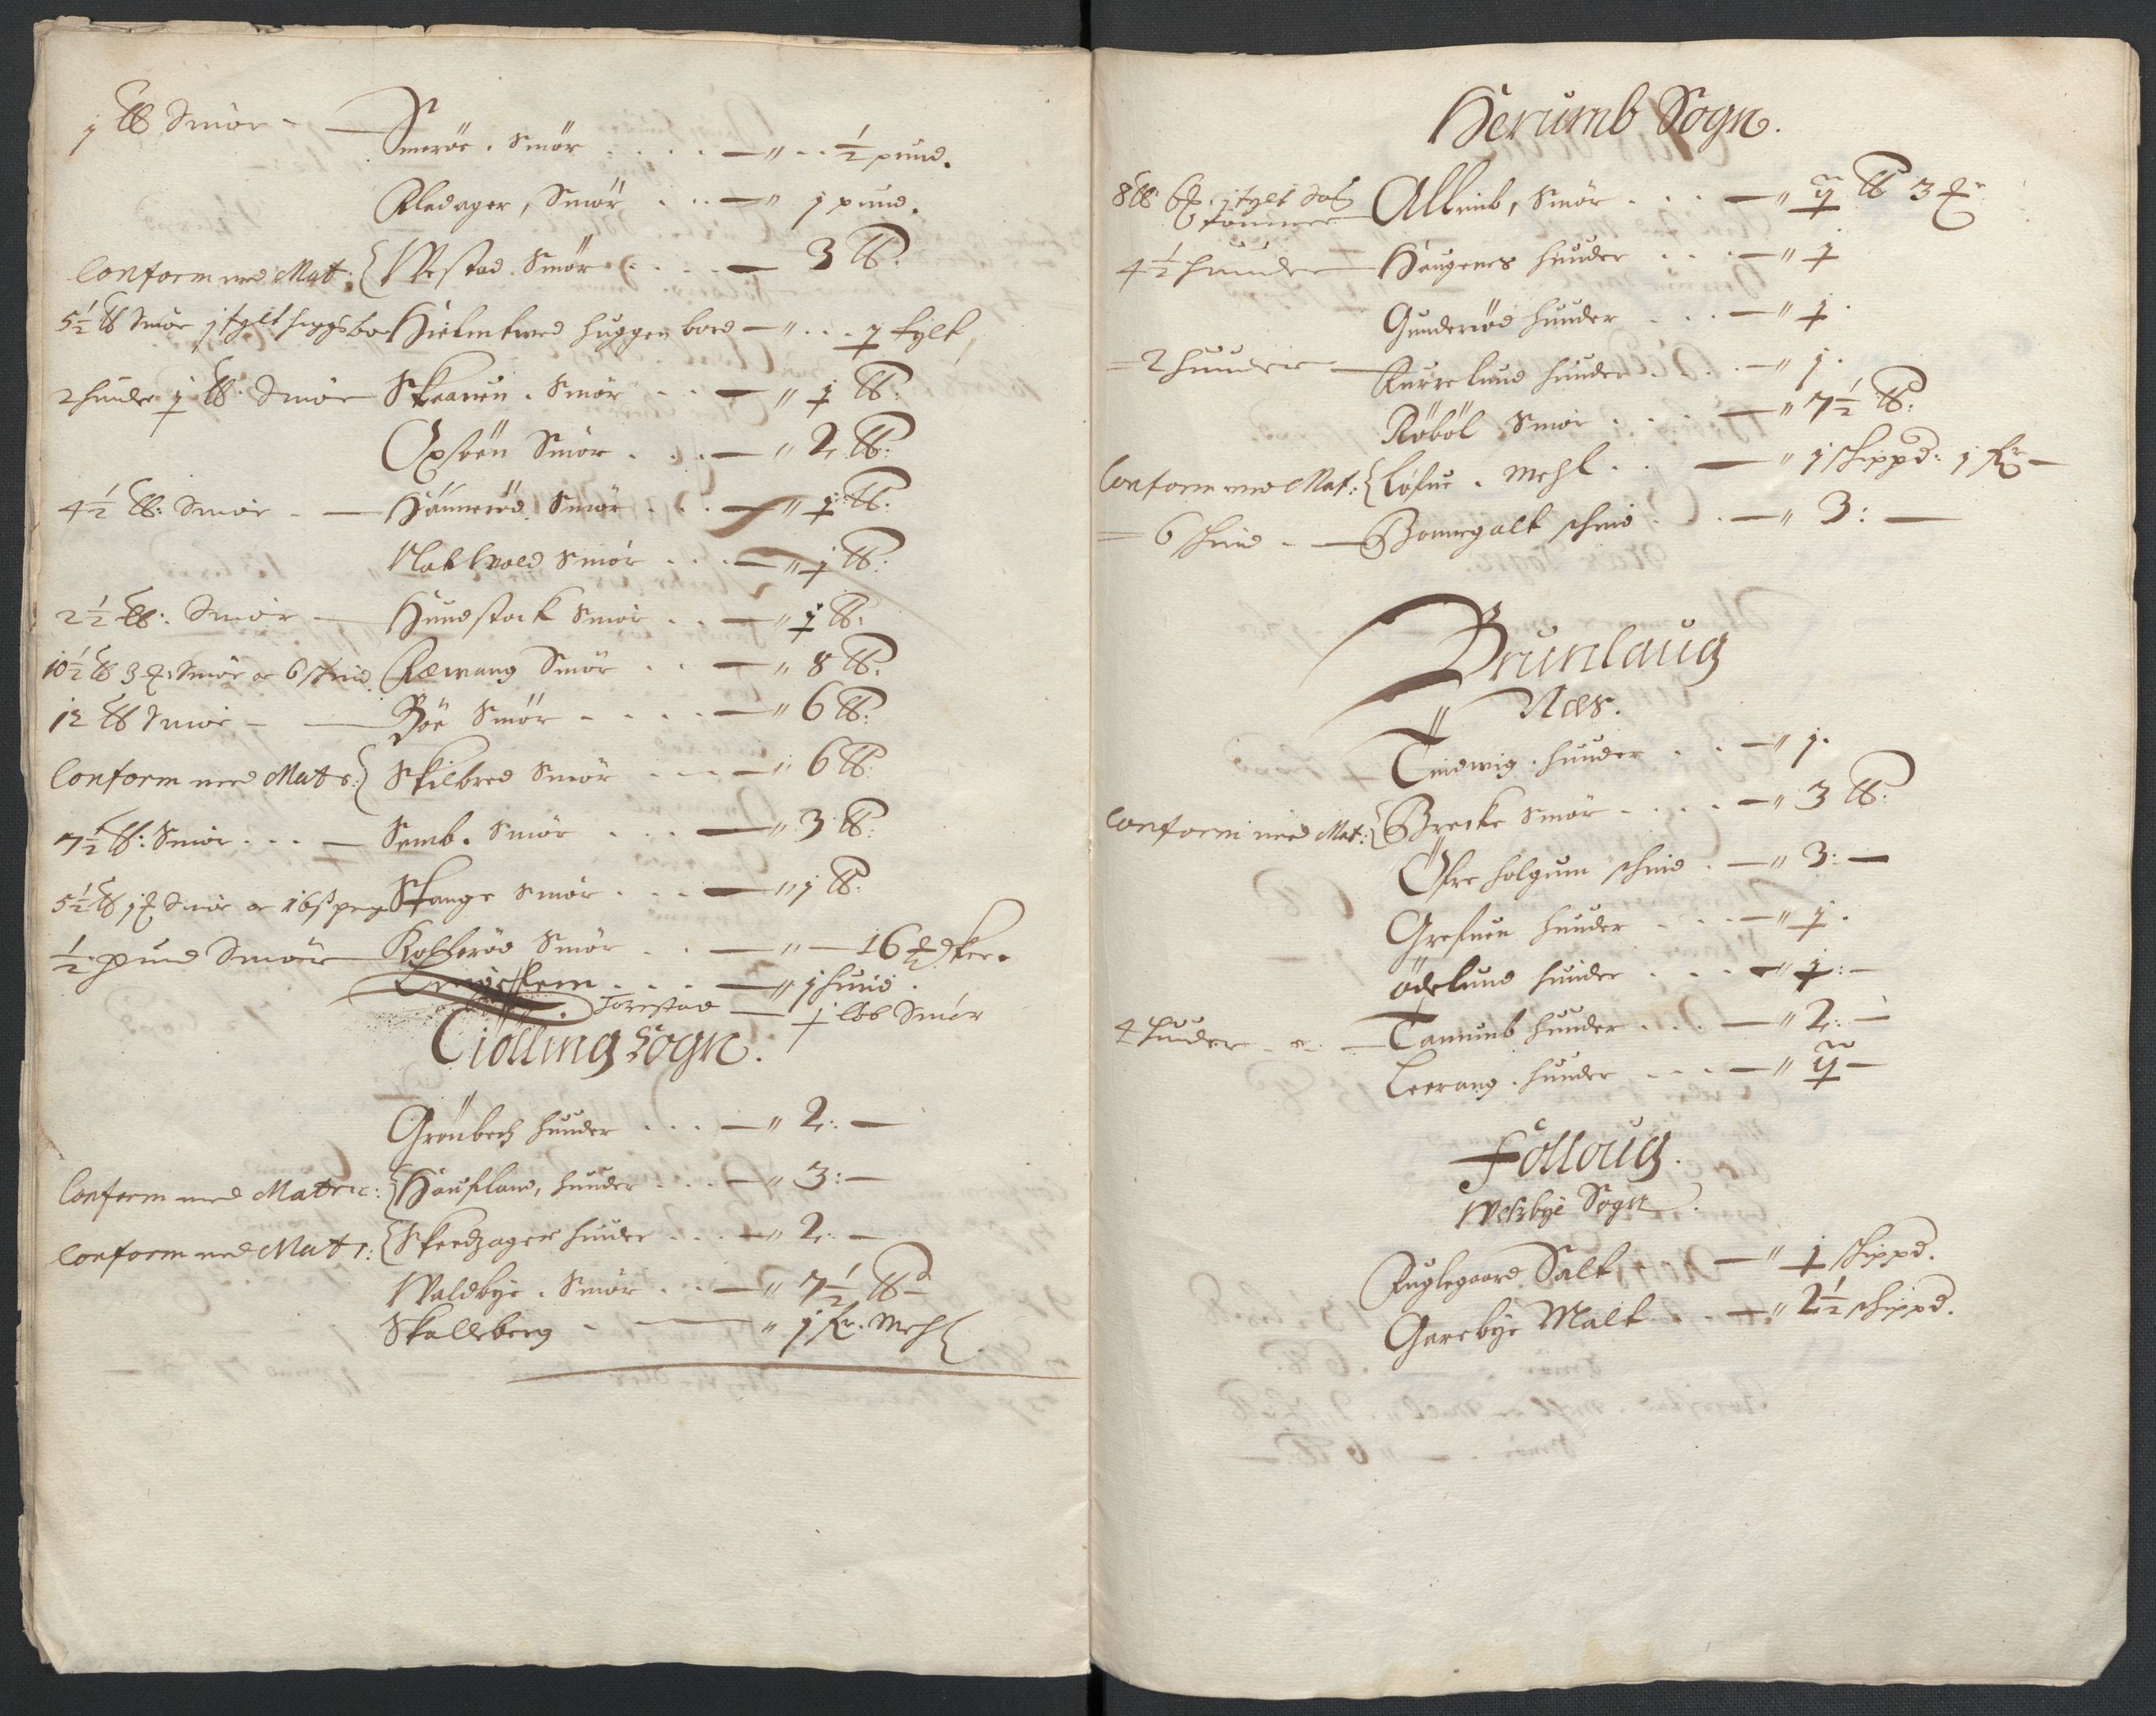 j ℔ Smör - Smerøe. Smör . . . . — " . . ½ pund.
Kledager, Smör . . — " j pund.
Conform med Mat: { Westad. Smör . . . . — 3 ℔.
5½ ℔ Smör j tylt huggen bor Hielmtved huggen bord — " . . . j tylt
2 huuder j ℔. Smör Skaauen. Smör . . . — " j ℔:
Oxböen Smör . . . — " 2 ℔:
4½ ℔: Smör - — Hännerød. Smör . . . — " j ℔.
Nathwold Smör . . . — " j ℔:
2½ ℔: Smör — Hundstock Smör . . — " j ℔.
10½ ℔ 3 Smör oc 6 skind Rewang Smör . . — " 8 ℔.
12 ℔ Smör - — Böe Smör - . . . — " 6 ℔:
Conform med Matr: } Skilbred Smör . . . — " 6 ℔:
7½ ℔: Smör . . . — Semb. Smör . . . — " 3 ℔:
5½ ℔ j Smör oc 16 s penge Skange Smör . . . — " j ℔:
½ pund Smör — Kolkerød Smör . . — " — 16½ ker.
. . . — " j huud.
Torestad — j lbb Smör
Tiölling Sogn.
Grönbech huuder . . . — " 2: —
Conform med Matric: { Haufland, huuder . . . — " 3: —
Conform med Matr: { Skeedzager huuder . . . — " 2: —
Waldbye. Smör . . — " 7½ ℔
Skalleberg - — " j Mehl.
Herumb Sogn.
8 ℔ 6 j tylt Sag tömmer Allumb, Smör . . . — " ij ℔ 3
4½ huuder — Haugenes huuder . . . — " j
Gunderröd huuder . . . — " j.
= 2 huuder — Kurrelund huuder . . . — " j.
Röböl Smör . . . — " 7½ ℔:
Conform med Mat: { Lofue. Mehl . . — " j skippd: j —
= 6 skind - — Bommegalt skind . . . — " 3: —
Brunlaug
Næs.
Tindwig. huuder . . — " j.
Conform med Mat: { Brecke Smör . . . . — " 3 ℔:
Öfre holgum skind . . — " 3: —
Grefuen huuder . . . — " j.
ödelund huuder . . . — " j: —
4 huuder - — Tanumb huuder . . . — " 2: —
Leerang. huuder - - - — " ij —
Folloug.
Wesbye Sogn.
Fuglegaard Salt . . — " j skippd.
Garebye Malt . . . — " 2½ skippd.